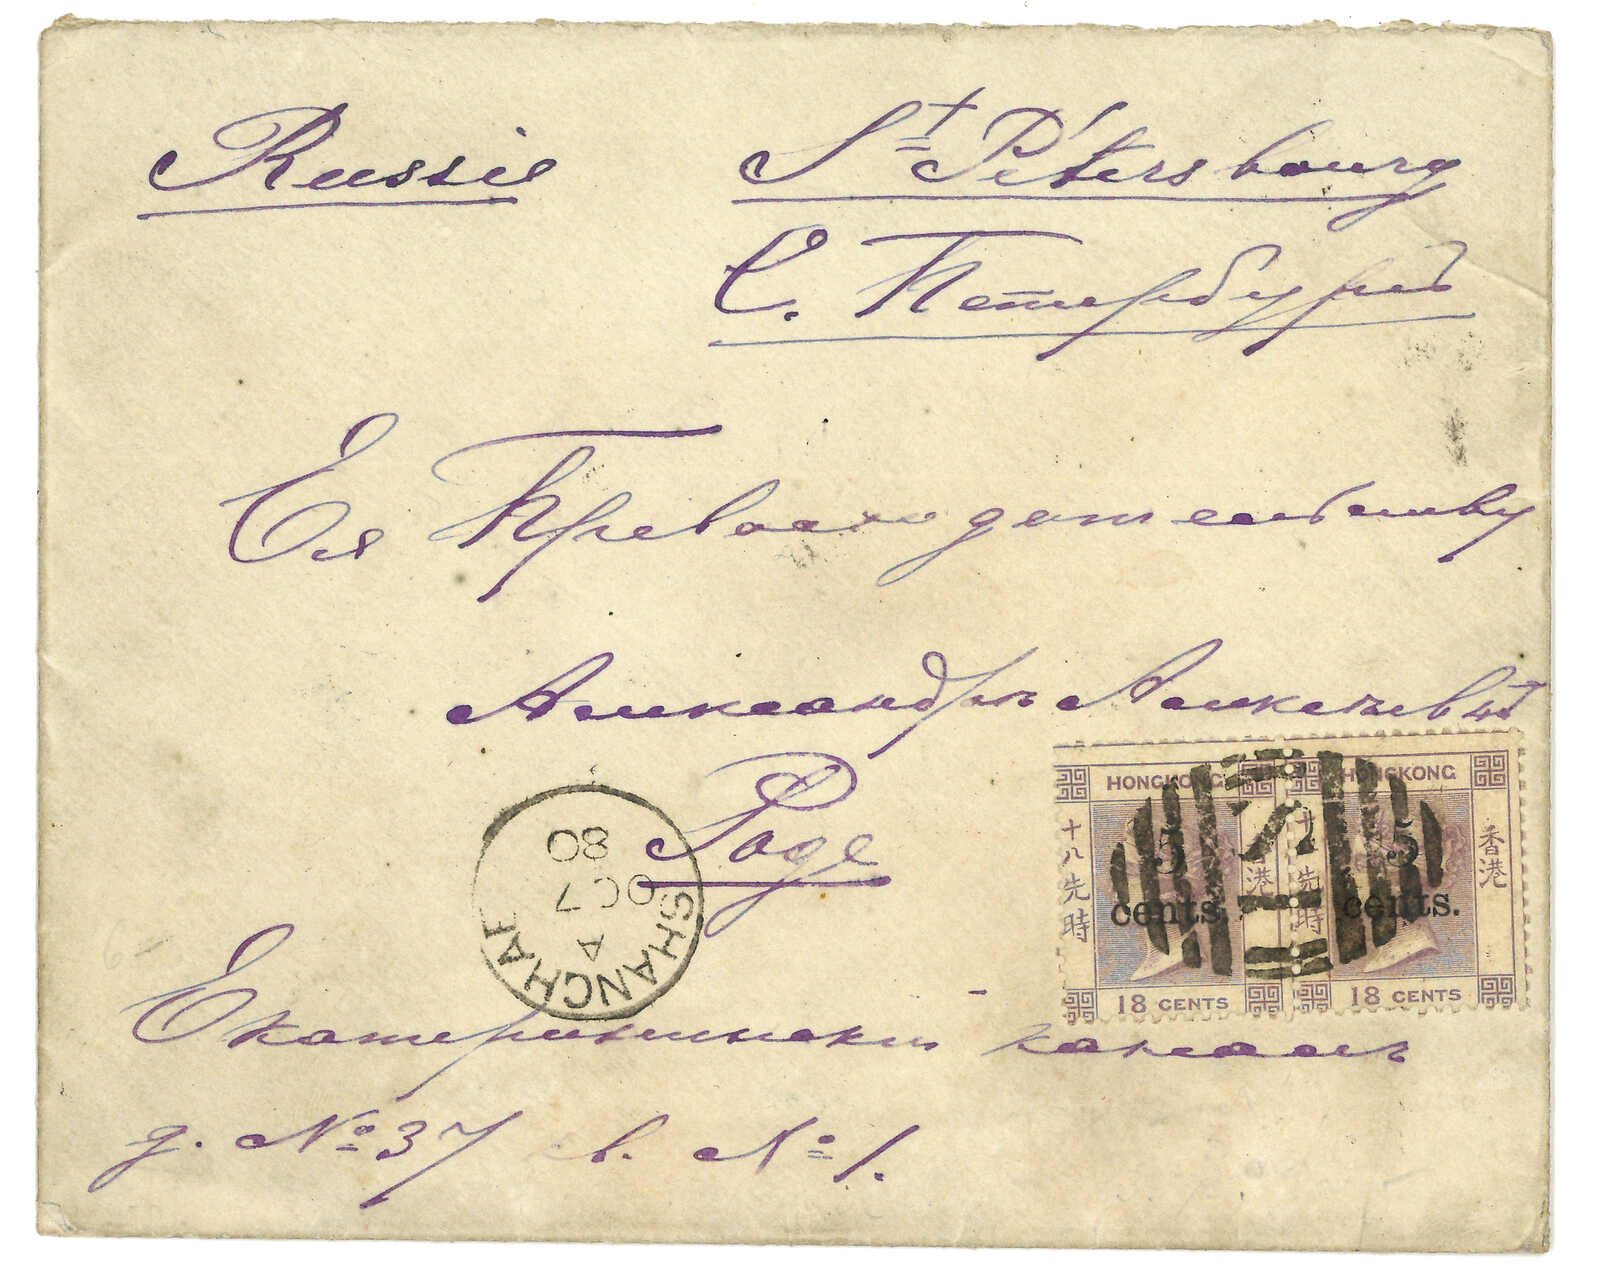 Russie St Pétersbourg
С. Петербургъ
Ея Превосходительству
Александръ Алексѣевнѣ
Роде
Екатерининскій каналъ
д. № 37 в. № 1.
SHANGHAE
A
OC 7
80
HONGKONG
十八先時
香港
5
cents.
18 CENTS
HONGKONG
十八先時
香港
5
cents.
18 CENTS
S1